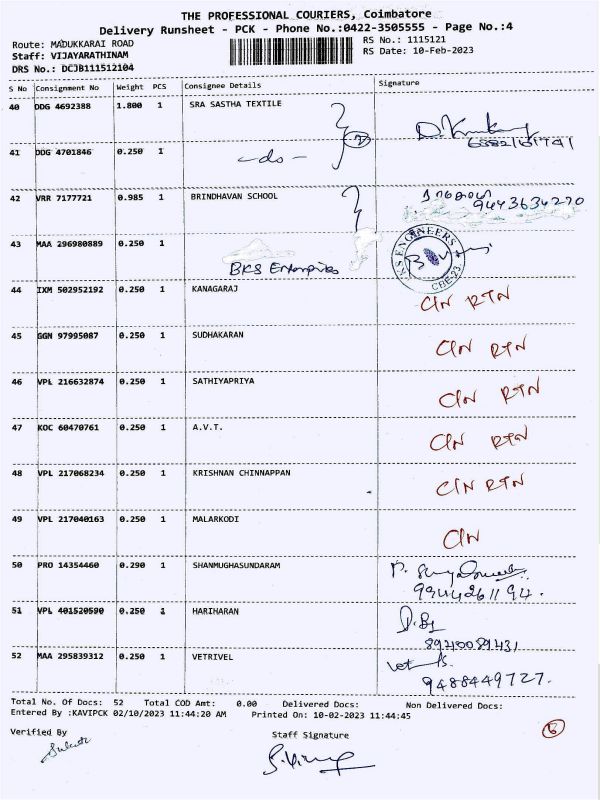 THE PROFESSIONAL COURIERS, Coimbatore
Delivery Runsheet - PCK - Phone No.:0422-3505555 - Page No.:4
Route: MADUKKARAI ROAD RS No.: 1115121
Staff: VIJAYARATHINAM RS Date: 10-Feb-2023
DRS No.: DCJB111512104
S No Consignment No Weight PCS Consignee Details Signature
40 DDG 4692388 1.800 1 SRA SASTHA TEXTILE
2
41 DDG 4701846 0.250 1 -do-
42 VRR 7177721 0.985 1 BRINDHAVAN SCHOOL
9443634270
43 MAA 296980889 0.250 1 BKS Enterprises
BKS ENGINEERS CBE-23
44 IXM 502952192 0.250 1 KANAGARAJ C/N RTN
45 GGN 97995087 0.250 1 SUDHAKARAN C/N RTN
46 VPL 216632874 0.250 1 SATHIYAPRIYA C/N RTN
47 KOC 60470761 0.250 1 A.V.T. C/N RTN
48 VPL 217068234 0.250 1 KRISHNAN CHINNAPPAN C/N RTN
49 VPL 217040163 0.250 1 MALARKODI C/N
50 PRO 14354460 0.290 1 SHANMUGHASUNDARAM
9944261194.
51 VPL 401520590 0.250 1 HARIHARAN
8940089431
52 MAA 295839312 0.250 1 VETRIVEL
9488449727.
Total No. Of Docs: 52 Total COD Amt: 0.00 Delivered Docs: Non Delivered Docs:
Entered By :KAVIPCK 02/10/2023 11:44:20 AM Printed On: 10-02-2023 11:44:45
6
Verified By Staff Signature